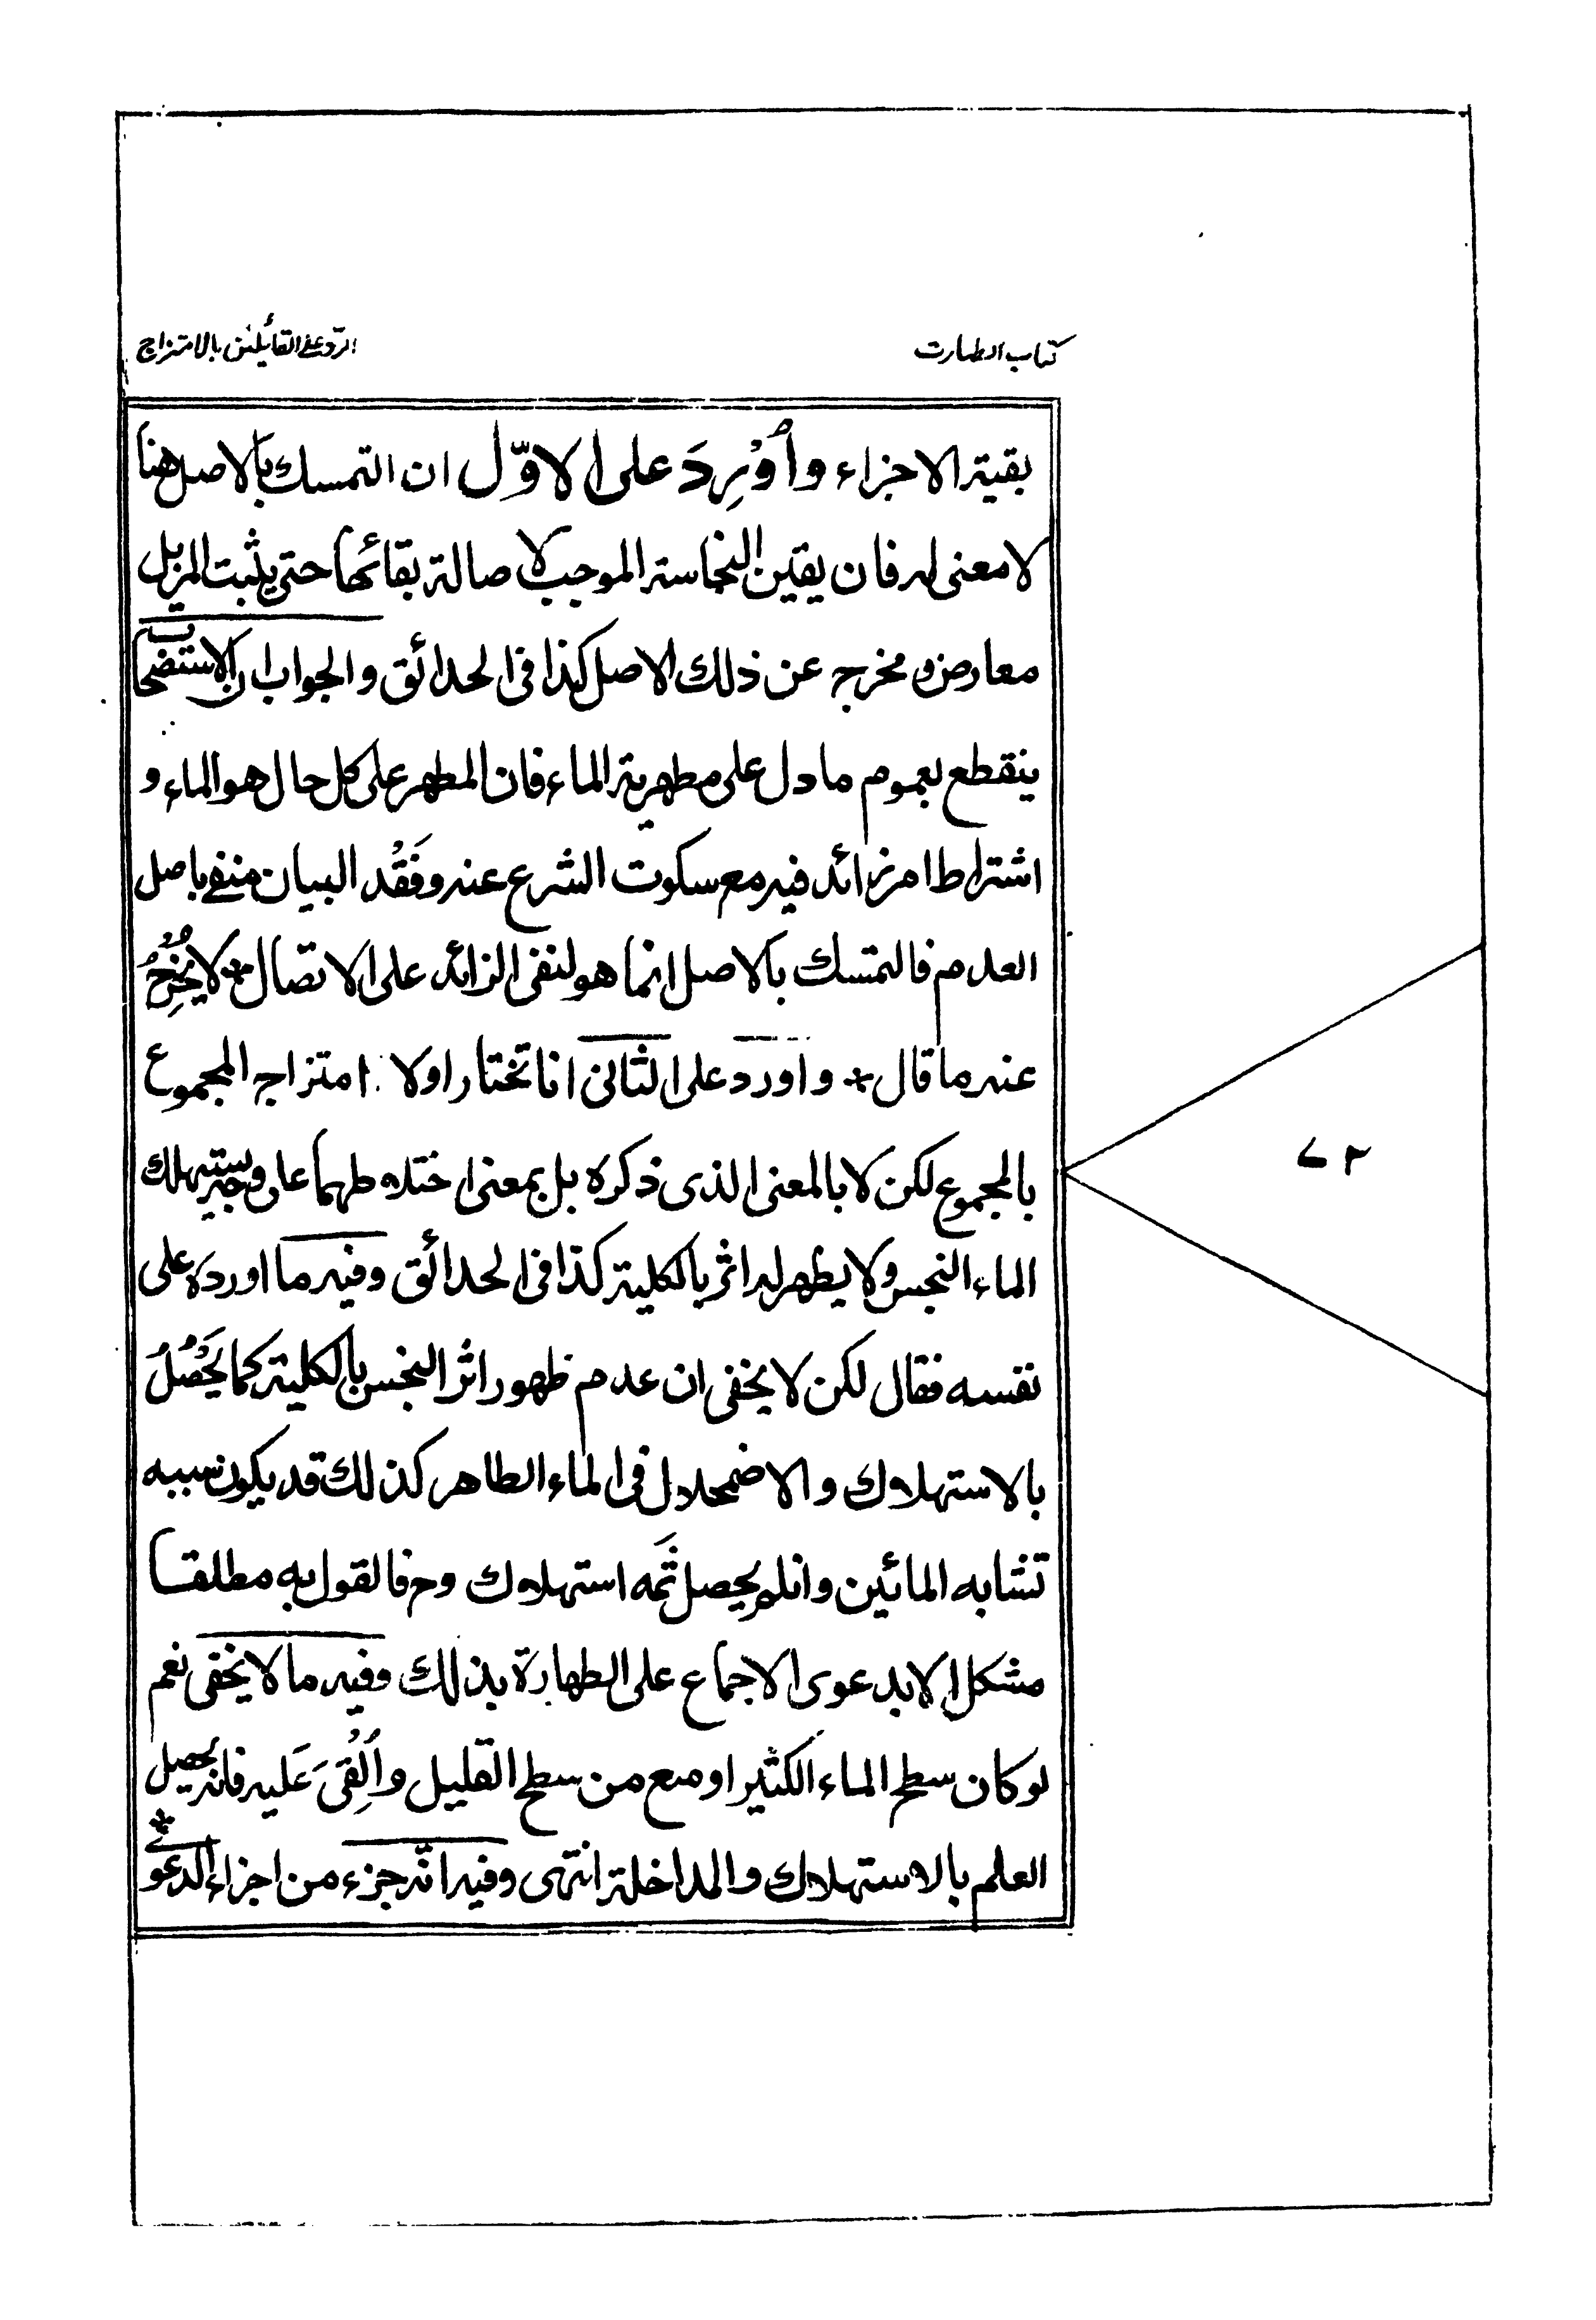 كتاب الطهارت
الردّ على القائلين بالامتزاج
بقية الاجزاء وأُوْرِدَ على الاوّل ان التمسك بالاصل هنا
لا معنى له فان يقين النجاسة الموجب لاصالة بقائها حتى يثبت المزيل
معارض و مخرج عن ذلك الاصل كذا فى الحدائق والجواب ان الاستصحاب
ينقطع بعموم ما دل على مطهرية الماء فان المطهر على كل حال هو الماء و
اشتراط امر زائد فيه مع سكوت الشرع عنه وفَقْد البيان منفے باصل
العدم فالتمسك بالاصل انما هو لنفى الزائد على الاتصال * لا يُخْرِجُ
عنه ما قال * و اورد على الثانى انا تختار اولا امتزاج المجموع
بالمجموع لكن لا بالمعنى الذى ذكره بل بمعنى اختلاطهما على وجه يستهلك
الماء النجس ولا يظهر له اثر بالكلية كذا فى الحدائق وفيه ما اورده على
نفسه فقال لكن لا يخفى ان عدم ظهور اثر النجس بالكلية كما يَحْصُلُ
بالاستهلاك والاضمحلال فى الماء الطاهر كذلك قد يكون سببه
تشابه المائين وان لم يحصل ثَمّه استهلاك وح فالقول به مطلقا
مشكل الا بدعوى الاجماع على الطهارة بذلك وفيه ما لا يخفى نعم
لو كان سطح الماء الكثير اوسع من سطح القليل وأُلْقِىَ عَليه فانه يحصل
العلم بالاستهلاك والمداخلة انتهى وفيه انّه جزء من اجزاء الدعوےٰ *
٧٢